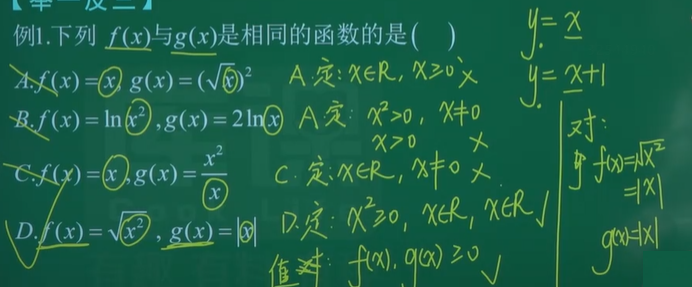 【举一反三】
例1.下列 f(x)与g(x)是相同的函数的是(  )
A.f(x)=x, g(x)=(√x)²
B.f(x)=lnx²,g(x)=2lnx
C.f(x)=x,g(x)=x²/x
D.f(x)=√x²,g(x)=|x|
A.定:x∈R, x≥0 ×
A定: x²>0, x≠0
x>0 ×
C.定:x∈R, x≠0 ×
D.定: x²≥0, x∈R, x∈R √
值: f(x), g(x)≥0 √
y=x
y=x+1
对:
f(x)=√x²
=|x|
g(x)=|x|